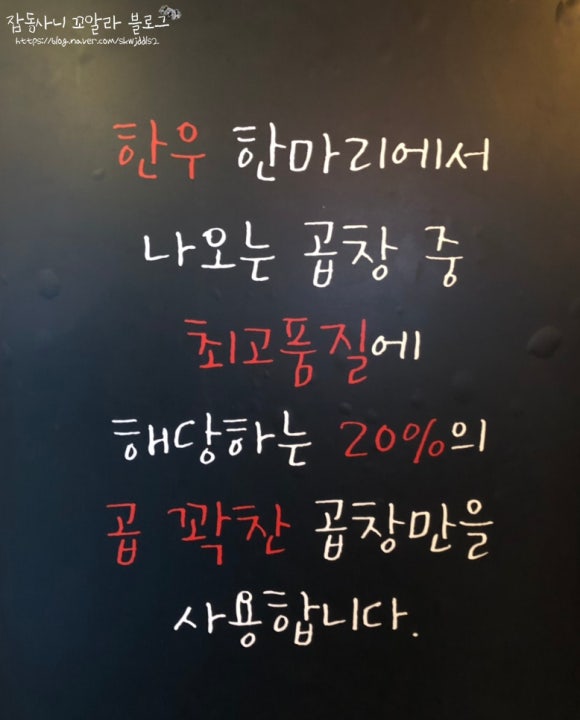 잡동사니 꼬알라 블로그
https://blog.naver.com/skwjddls2
한우 한마리에서
나오는 곱창 중
최고품질에
해당하는 20%의
곱 꽉찬 곱창만을
사용합니다.